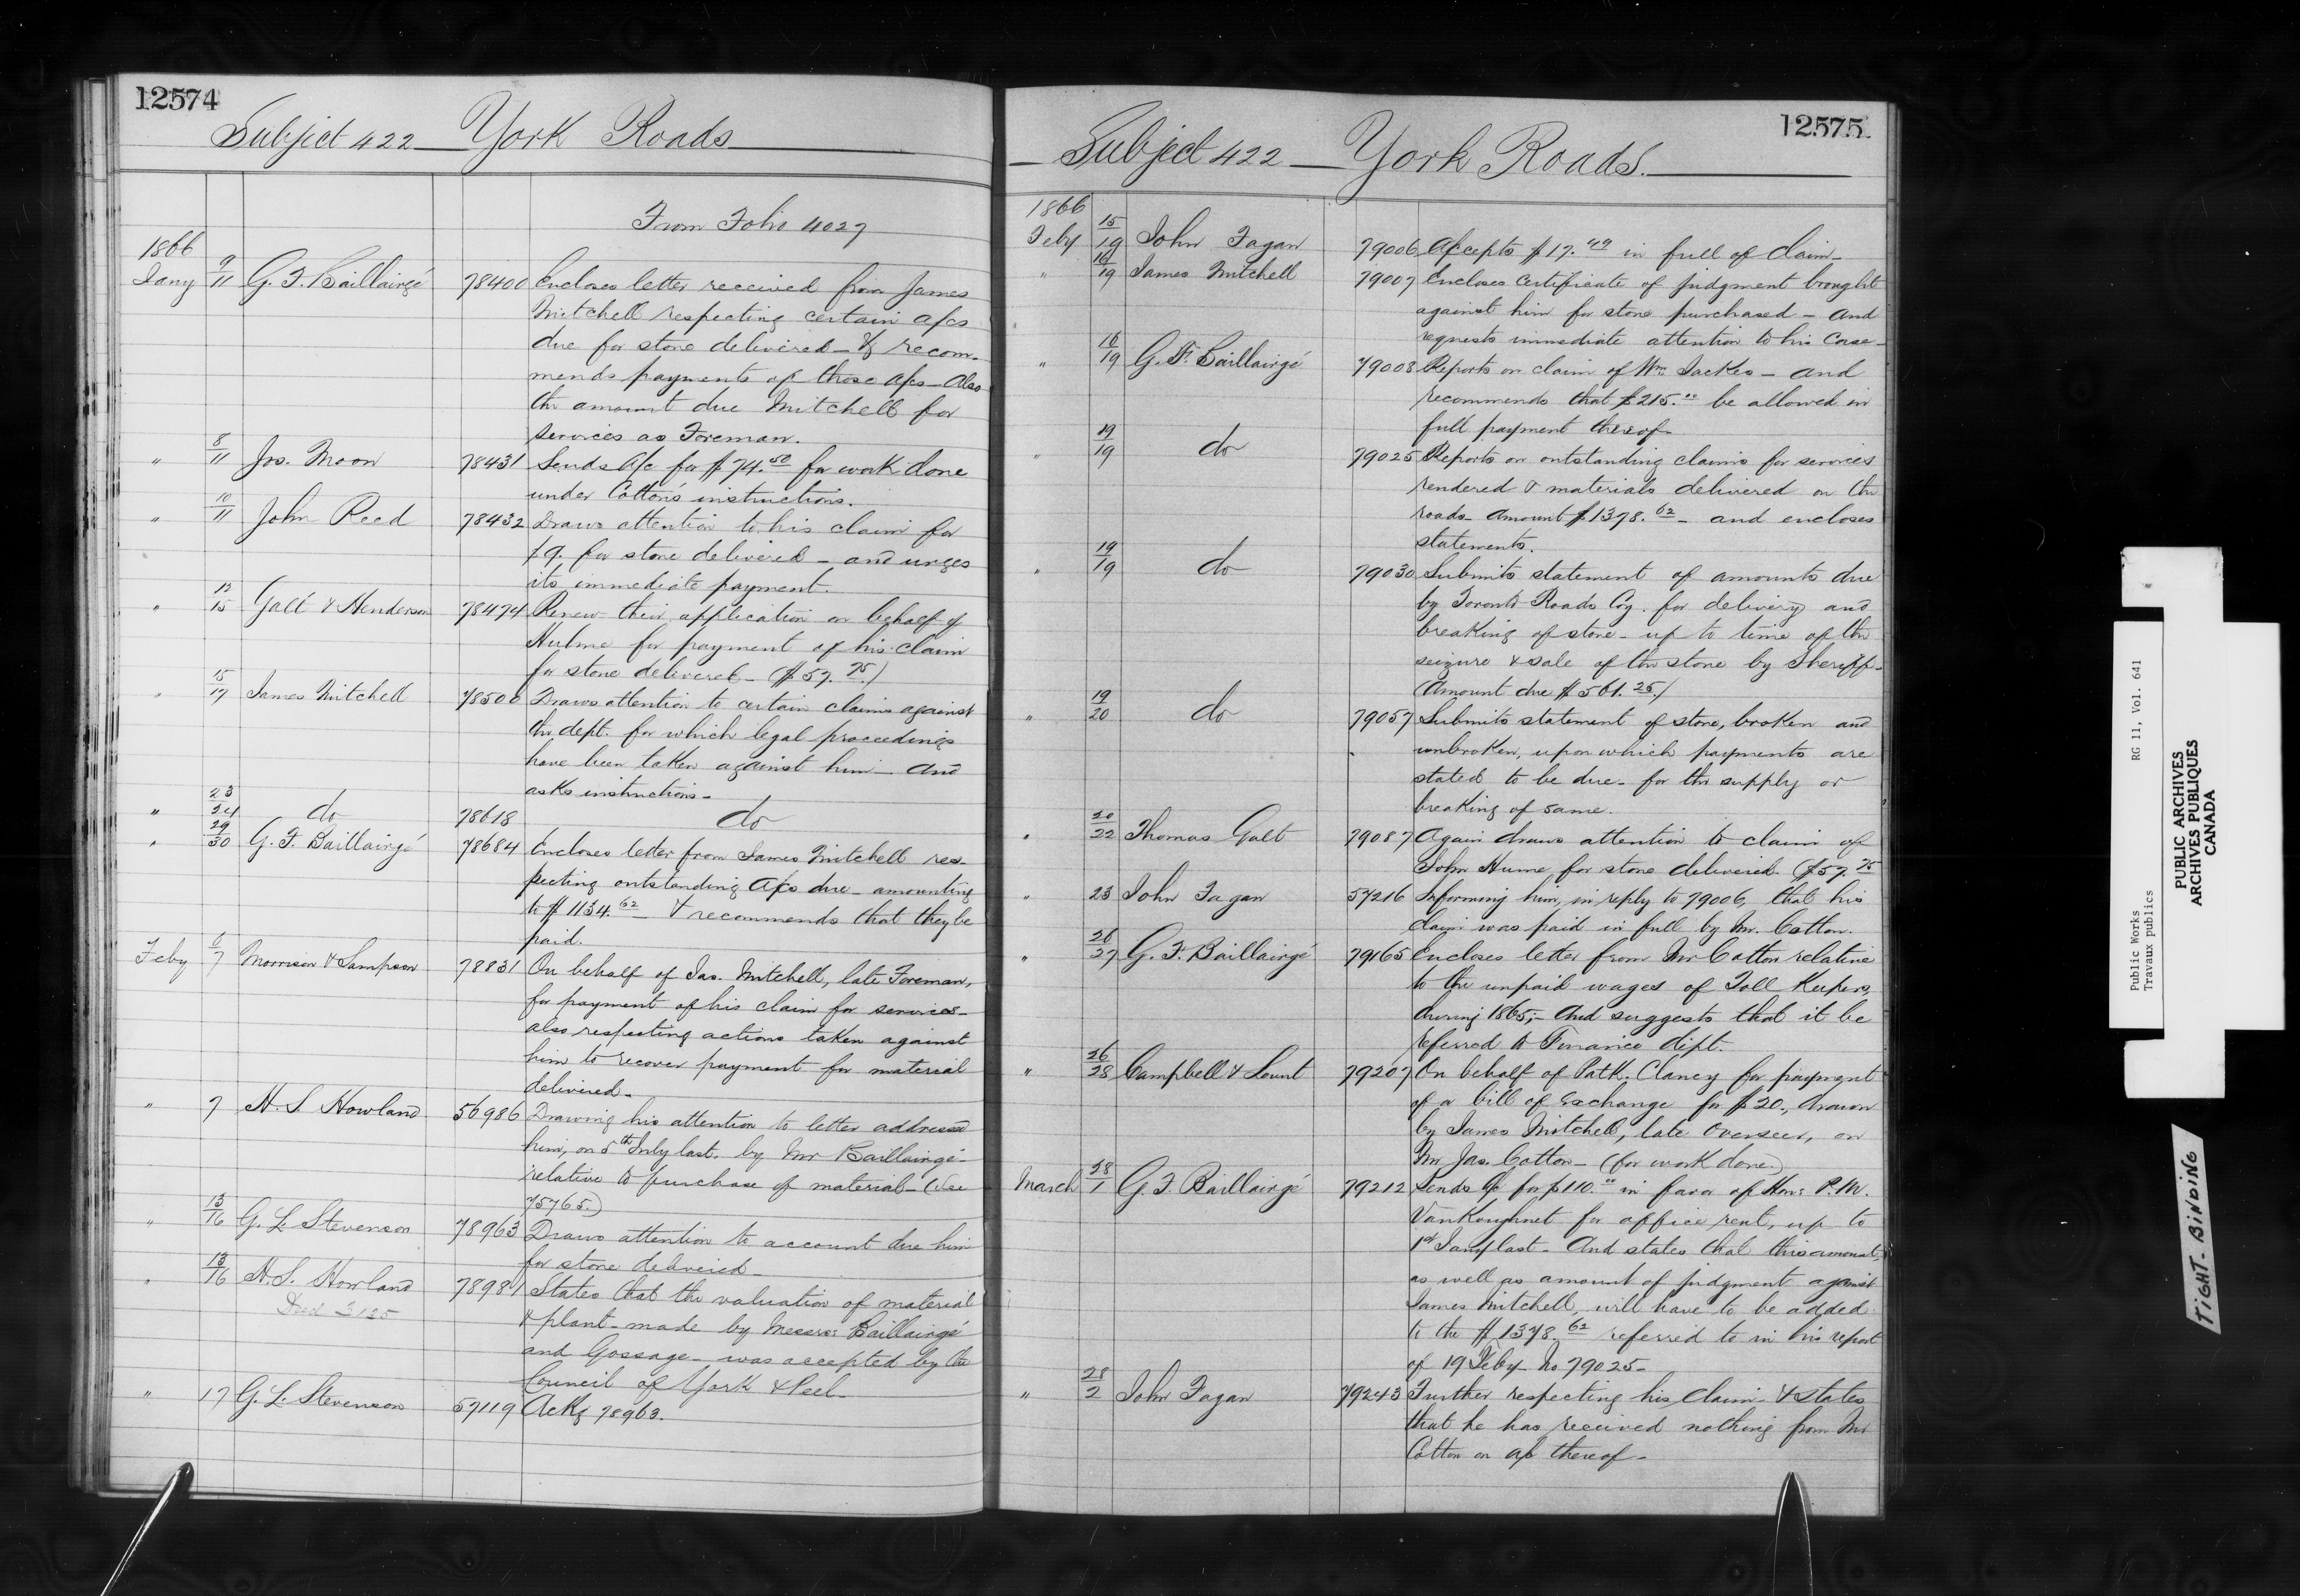 12574
Subject 422 — York Roads
From Folio 4027
1866
Jany 9/11 G. F. Baillairgé 78400 Encloses letter received from James
Mitchell respecting certain a/cs
due for stone delivered — & recom-
mends payments of those a/cs — Also
the amount due Mitchell for
services as Foreman.
" 8/11 Jos. Moon 78431 Sends a/c for $74.50 for work done
under Cotton's instructions.
" 10/11 John Reed 78432 Draws attention to his claim for
$9. for stone delivered — and urges
its immediate payment.
" 12/15 Galt & Henderson 78474 Renew their application on behalf of
Hulme for payment of his claim
for stone delivered — ($57.75.)
" 15/17 James Mitchell 78500 Draws attention to certain claims against
the dept. for which legal proceedings
have been taken against him — and
asks instructions —
" 23/24 do 78618 do
" 29/30 G. F. Baillairgé 78684 Encloses letter from James Mitchell res-
pecting outstanding a/cs due — amounting
to $1134.62 — & recommends that they be
paid.
Feby 6/7 Morrison & Sampson 78831 On behalf of Jas. Mitchell, late Foreman,
for payment of his claim for services —
also respecting actions taken against
him to recover payment for material
delivered —
" 7 H. S. Howland 56986 Drawing his attention to letter addressed
him, on 5th July last, by Mr Baillairgé —
relative to purchase of material — (See
75765.)
" 13/16 G. L. Stevenson 78963 Draws attention to account due him
for stone delivered —
" 13/16 H. S. Howland 78981 States that the valuation of material
Deed 3125
& plant — made by Messrs: Baillairgé
and Gossage — was accepted by the
Council of York & Peel —
" 17 G. L. Stevenson 57119 Ackg 78963.
12575
— Subject 422 — York Roads. —
1866
Feby 15/19 John Fagan 79006 Accepts $17.49 in full of claim —
" 16/19 James Mitchell 79007 Encloses certificate of judgment brought
against him for stone purchased — and
requests immediate attention to his case —
" 16/19 G. F. Baillairgé 79008 Reports on claim of Wm Jackes — and
recommends that $215.00 be allowed in
full payment thereof —
" 19/19 do 79025 Reports on outstanding claims for services
rendered & materials delivered on the
roads — amount $1378.62 — and encloses
statements.
" 19/19 do 79030 Submits statement of amounts due
by Toronto Roads Coy. for delivery and
breaking of stone — up to time of the
seizure & sale of the stone by Sheriff —
(Amount due $561.25.)
" 19/20 do 79057 Submits statement of stone, broken and
unbroken, upon which payments are
stated to be due — for the supply or
breaking of same.
" 20/22 Thomas Galt 79087 Again draws attention to claim of
John Hume for stone delivered. ($57.75
" 23 John Fagan 57216 Informing him, in reply to 79006, that his
claim was paid in full by Mr. Cotton.
" 26/27 G. F. Baillairgé 79165 Encloses letter from Mr Cotton relative
to the unpaid wages of Toll Keepers,
during 1865; — and suggests that it be
referred to Finance dept.
" 26/28 Campbell & Lount 79207 On behalf of Patk. Clancy for payment
of a bill of exchange for $20., drawn
by James Mitchell, late Overseer, on
Mr Jas. Cotton — (for work done.)
March 28/1 G. F. Baillairgé 79212 Sends a/c for $110.00 in favor of Hon: P. M.
VanKoughnet for office rent, up to
1st Jany last — And states that this amount,
as well as amount of judgment against
James Mitchell, will have to be added
to the $1378.62 referred to in his report
of 19 Feby — No 79025 —
" 28/2 John Fagan 79243 Further respecting his claim — & states
that he has received nothing from Mr
Cotton on a/c thereof —
Public Works RG 11, Vol. 641
Travaux publics
PUBLIC ARCHIVES
ARCHIVES PUBLIQUES
CANADA
TIGHT BINDING